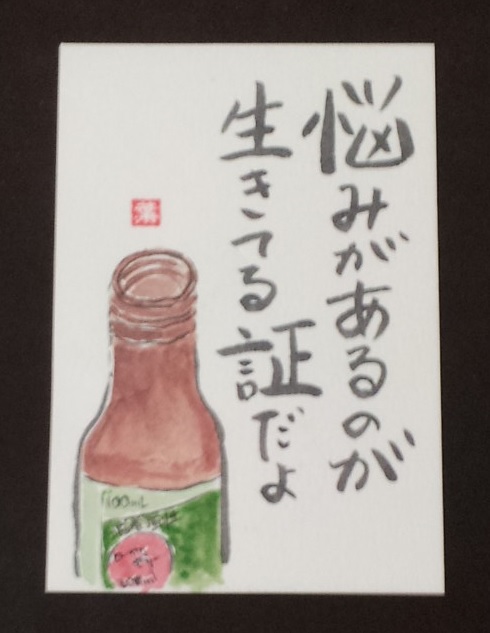 悩みがあるのが
生きてる証だよ
葉
100mL